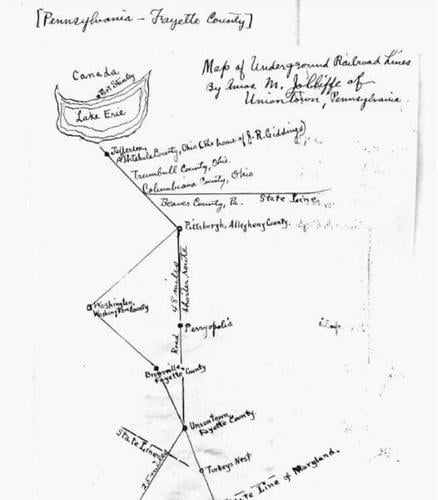 [Pennsylvania - Fayette County]
Map of Underground Railroad Lines
By Amos M. Jolliffe of
Uniontown, Pennsylvania.
Canada
Port Stanley
Lake Erie
Jefferson,
Ashtabula County, Ohio (the home of J.R. Giddings)
Trumbull County, Ohio.
Columbiana County, Ohio
State Line
Beaver County, Pa.
Pittsburgh, Allegheny County.
48 miles
shorter route
Washington,
Washington County
Perryopolis
Road
Brownsville,
Fayette County
Uniontown,
Fayette County.
State Line
25 miles
Turkeys Nest
State Line of Maryland.